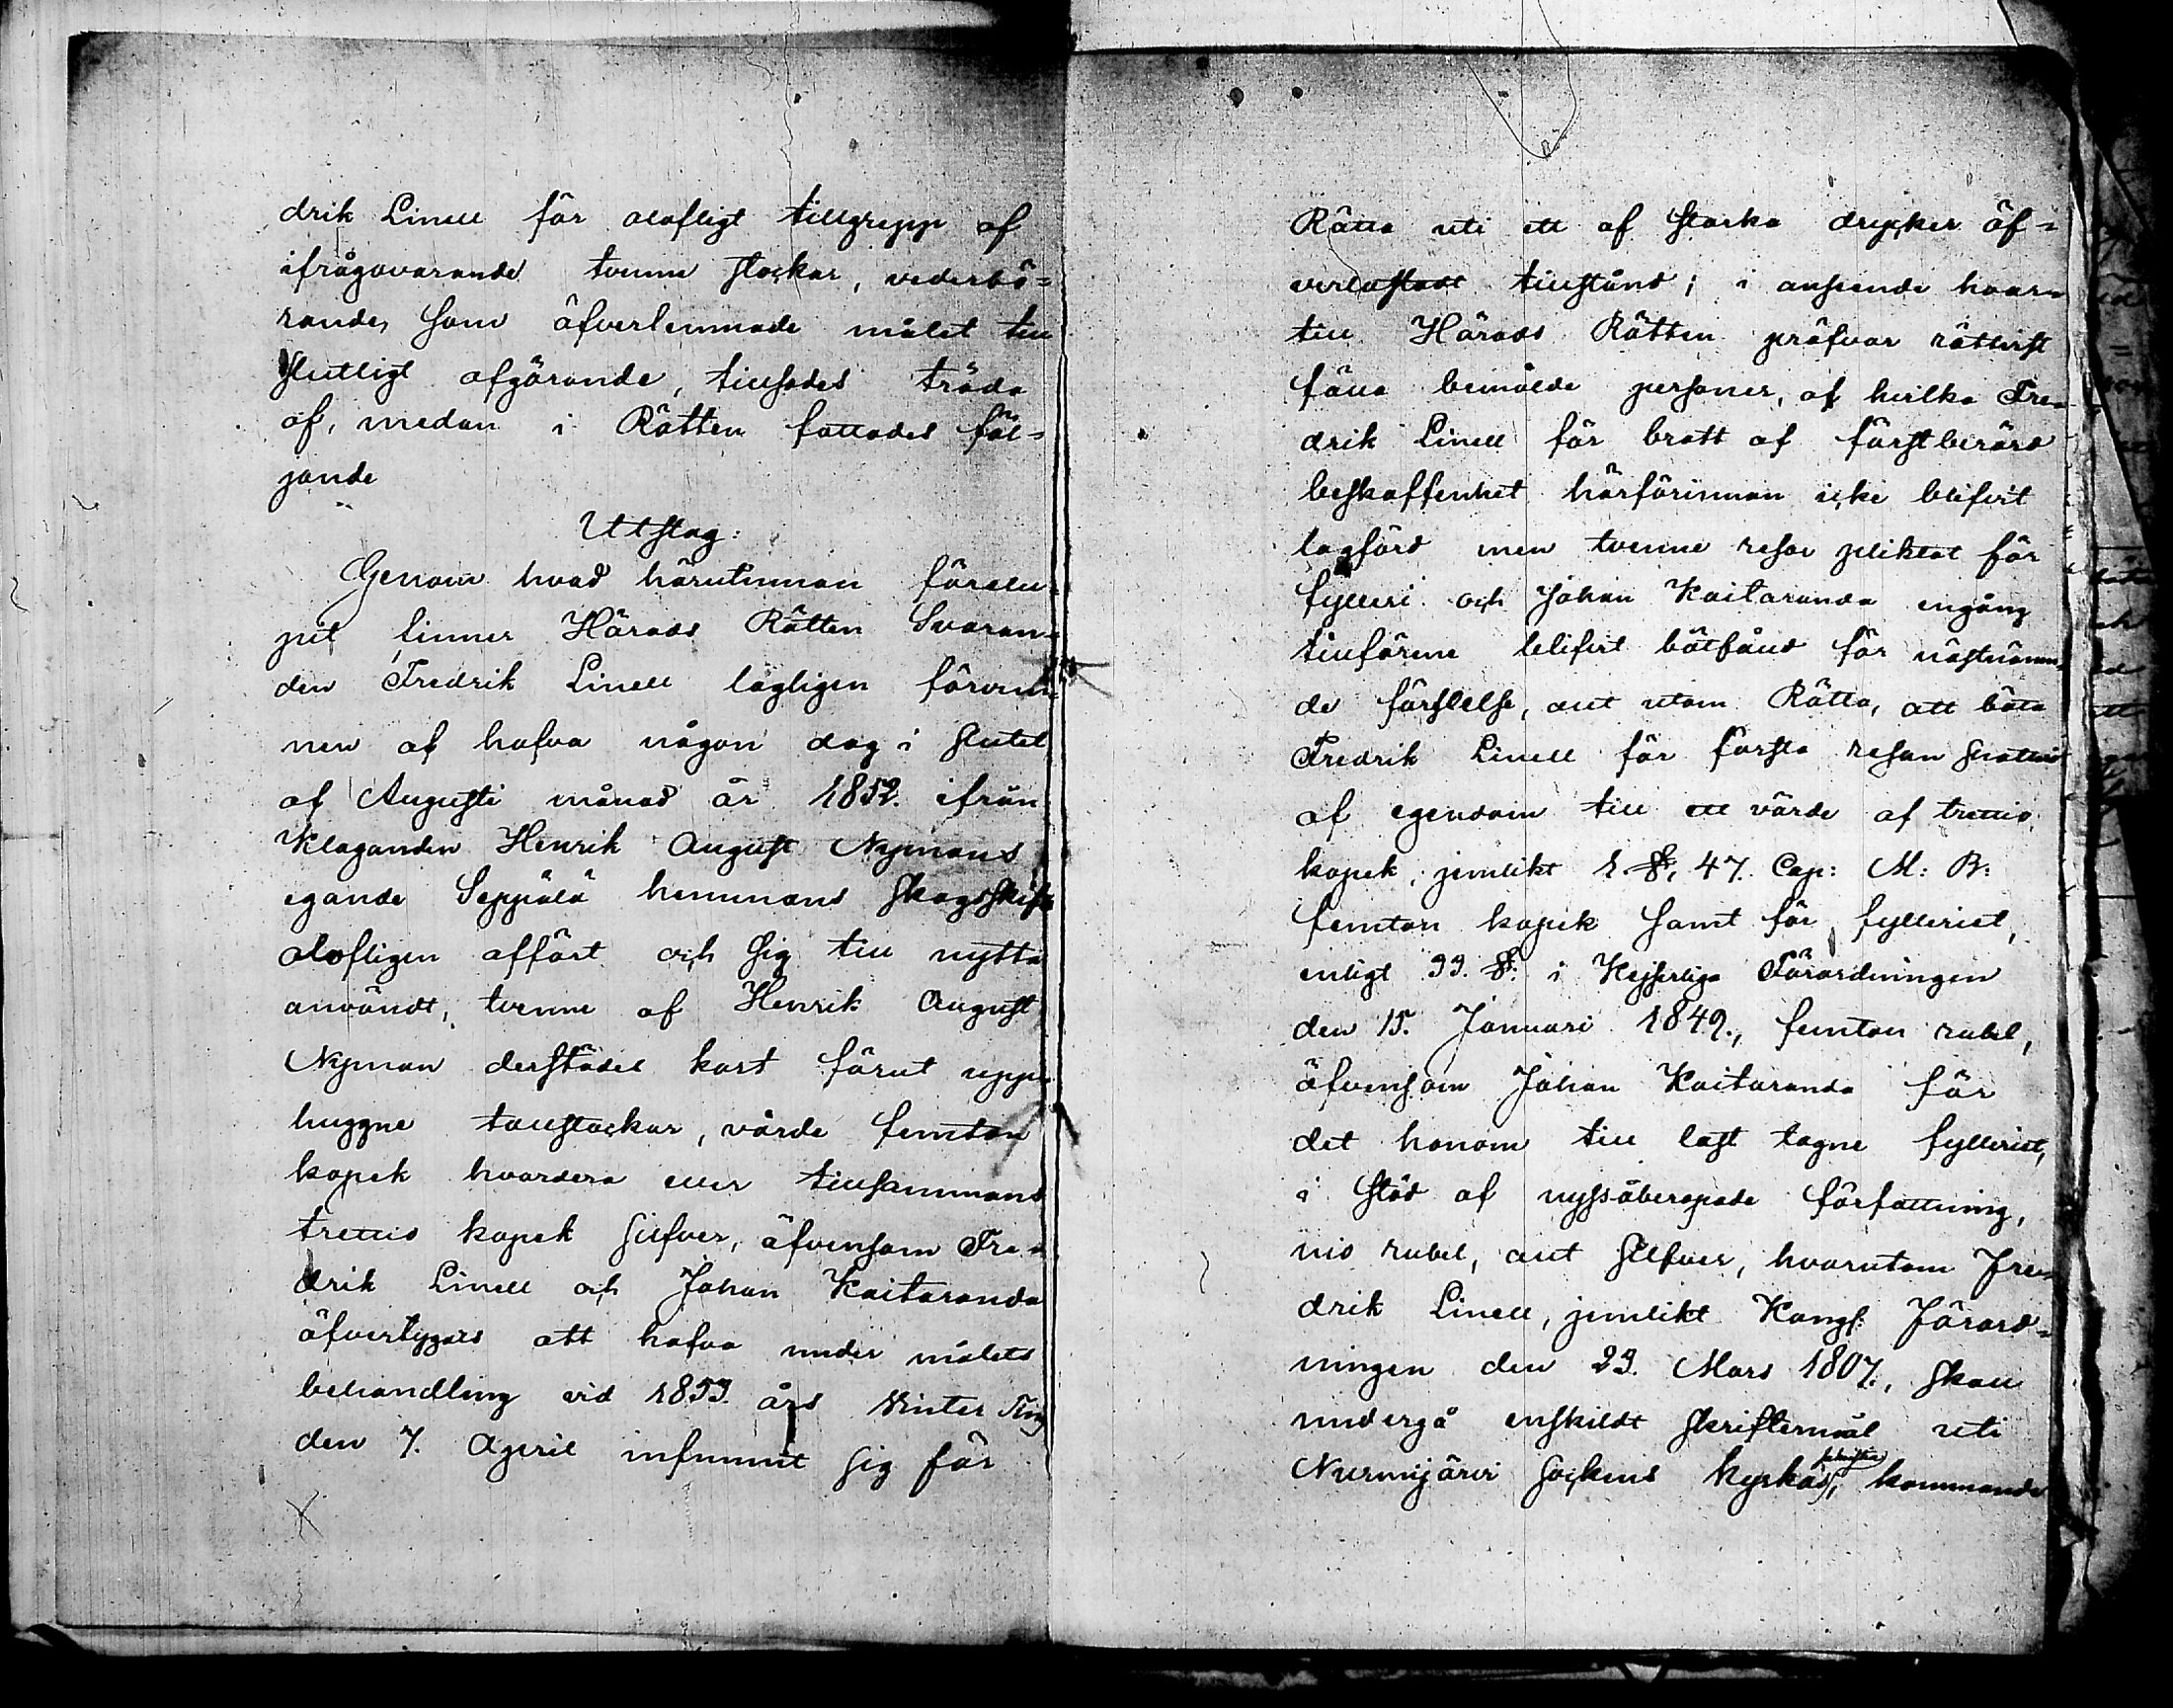 drik Linell för olofligt tillgrepp af
ifrågavarande tvenne stockar, vederbö=
rande, som öfverlemnade målet till
slutligt afgörande, tillsades träda
af, medan i Rätten fattades föl=
jande
Utslag:
Genom hvad härutinnan förelu=
pit finner Härads Rätten Svaran=
den Fredrik Linell lagligen förvun=
nen af hafva någon dag i slutet
af Augusti månad år 1852. ifrån
Klaganden Henrik August Nymans
egande Seppälä hemmans skogsskifte
olofligen affört och sig till nytta
användt, tvenne af Henrik August
Nyman derstädes kort förut upp=
huggne tallstockar, värde femton
kopek hvardera eller tillsammans
trettio kopek silfver, äfvensom Fre=
drik Linell och Johan Kaitaranda
öfvertygats att hafva under målets
behandling vid 1853. års Vinter Ting
den 7. April infunnit sig för
Rätta uti ett af starka drycker öf=
verlastadt tillstånd; i anseende hvar=
till Härads Rätten pröfvar rättvist
fälla bemälde personer, af hvilka Fre=
drik Linell för brott af förstberörd
beskaffenhet härförinnan icke blifvit
lagförd men tvenne resor pliktat för
fylleri och Johan Kaitaranda engång
tillförene blifvit bötfäld för nästnämn=
de förseelse, allt utom Rätta, att böta
Fredrik Linell för första resan snatteri
af egendom till ett värde af trettio
kopek, jemlikt 1. §, 47. Cap: M: B:
femton kopek samt för fylleriet,
enligt 33. §: i Kejserliga Förordningen
den 15. Januari 1849., femton rubel,
äfvensom Johan Kaitaranda för
det honom till last lagne fylleriet,
i stöd af nyssåberopade författning,
nio rubel, allt silfver, hvarutom Fre=
drik Linell, jemlikt Kongl: Förord=
ningen den 23. Mars 1807., skall
undergå enskildt skriftermål uti
Nurmijärvi Sockens Kyrkas sakristia, kommande